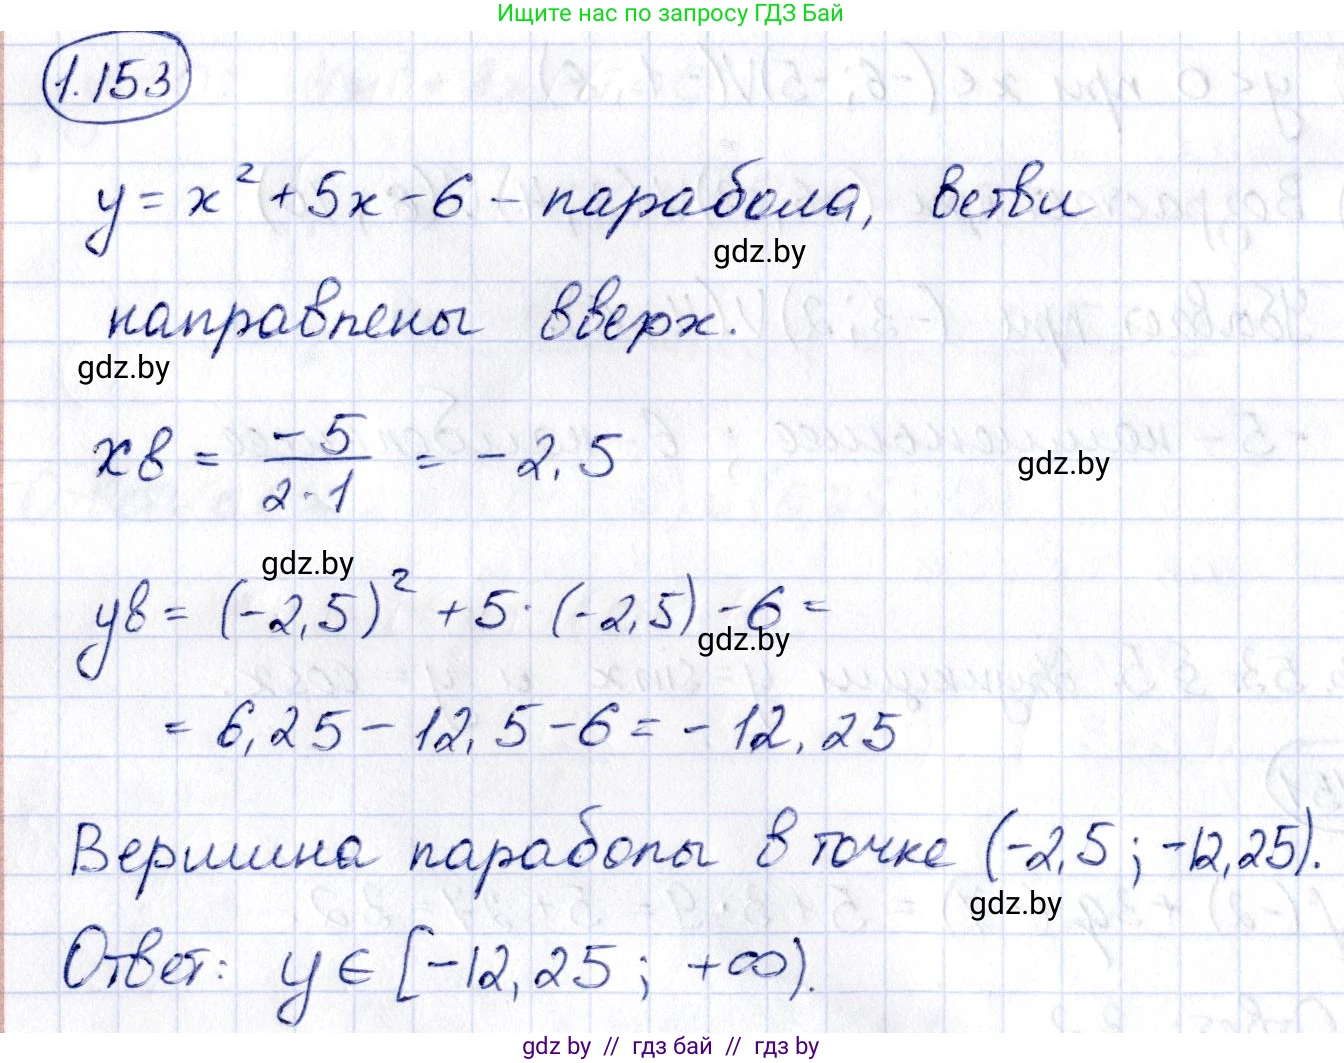 Ищите нас по запросу ГДЗ Бай
1.153
y = x² + 5x - 6 - парабола, ветви
gdz.by
направлены вверх.
gdz.by
xв = -5 / 2·1 = -2,5
gdz.by
gdz.by
yв = (-2,5)² + 5·(-2,5) - 6 =
gdz.by
= 6,25 - 12,5 - 6 = -12,25
Вершина параболы в точке (-2,5; -12,25).
gdz.by
Ответ: y ∈ [-12,25; +∞).
gdz by // гдз бай // гдз by